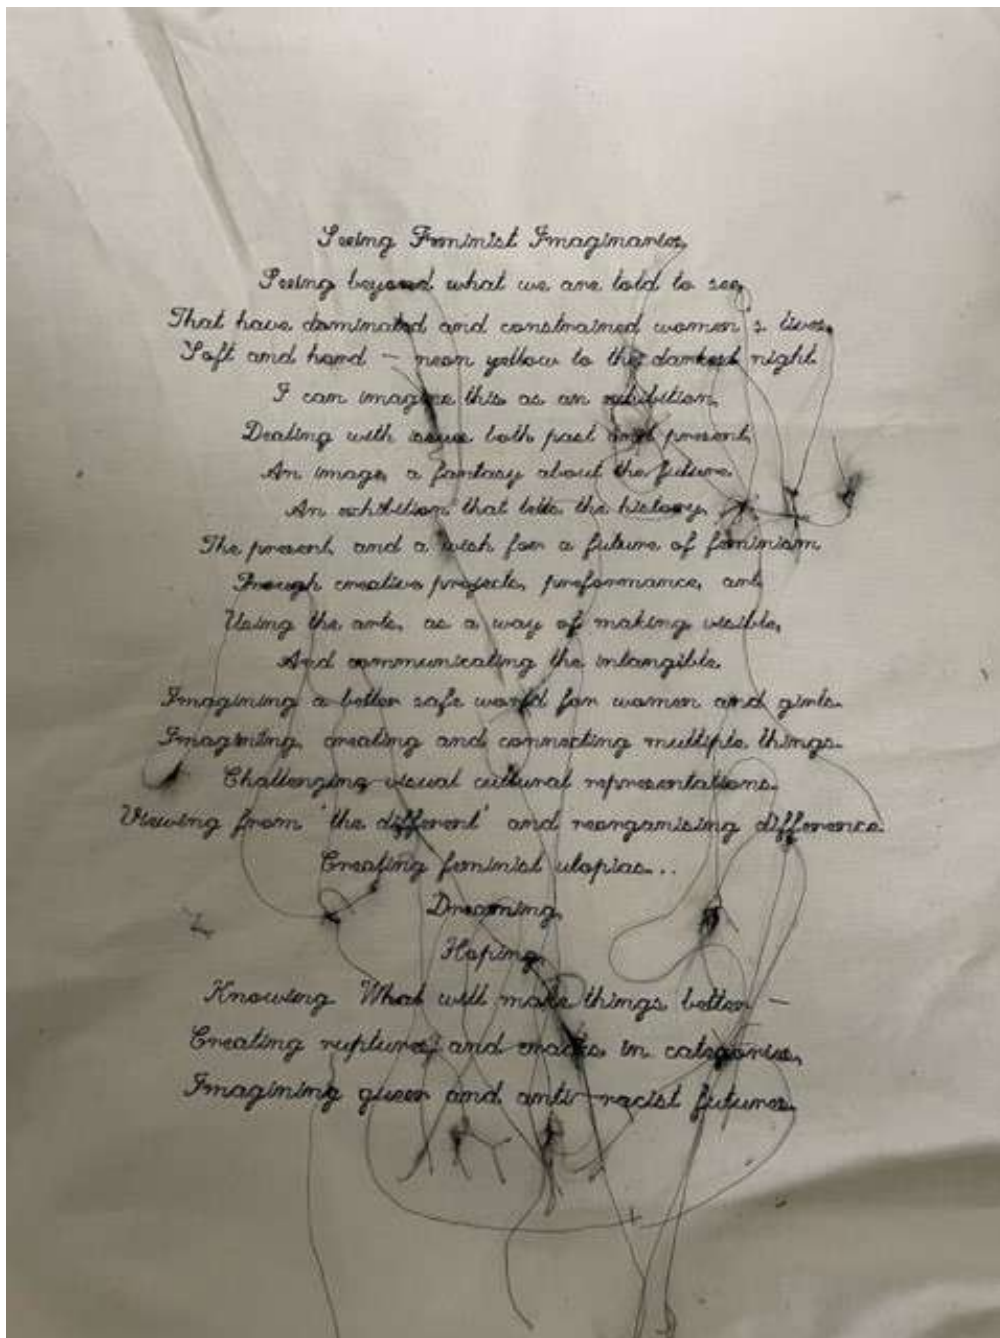 Seeing Feminist Imaginaries,
Seeing beyond what we are told to see,
That have dominated and constrained women's lives.
Soft and hard – neon yellow to the darkest night.
I can imagine this as an exhibition,
Dealing with issues both past and present,
An image, a fantasy about the future.
An exhibition that tells the history,
The present, and a wish for a future of feminism
Through creative projects, preformance, art,
Using the arts, as a way of making visible,
And communicating the intangible.
Imagining a better safe world for women and girls.
Imagining, creating and connecting multiple things.
Challenging visual cultural representations.
Viewing from 'the different' and reorganising difference.
Creating feminist utopias...
Dreaming,
Hoping,
Knowing What will make things better –
Creating ruptures, and cracks in categories,
Imagining queer and anti-racist futures.